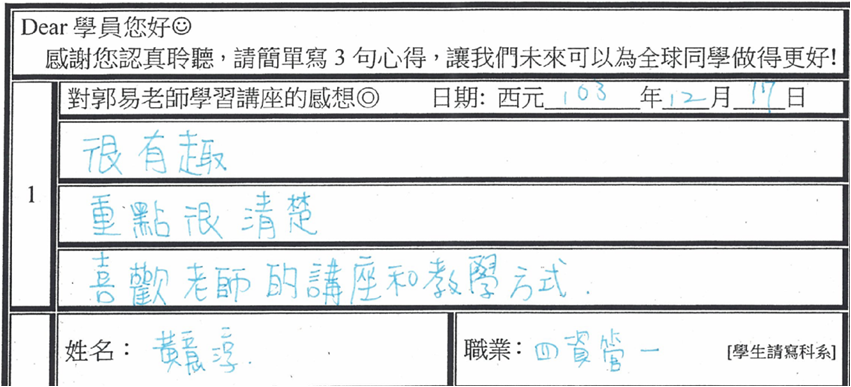 Dear 學員您好☺
感謝您認真聆聽，請簡單寫 3 句心得，讓我們未來可以為全球同學做得更好!
對郭易老師學習講座的感想◎ 日期: 西元 103 年 12 月 17 日
很有趣
1
重點很清楚
喜歡老師的講座和教學方式.
姓名： 黃 淳 職業： 四資管一 [學生請寫科系]